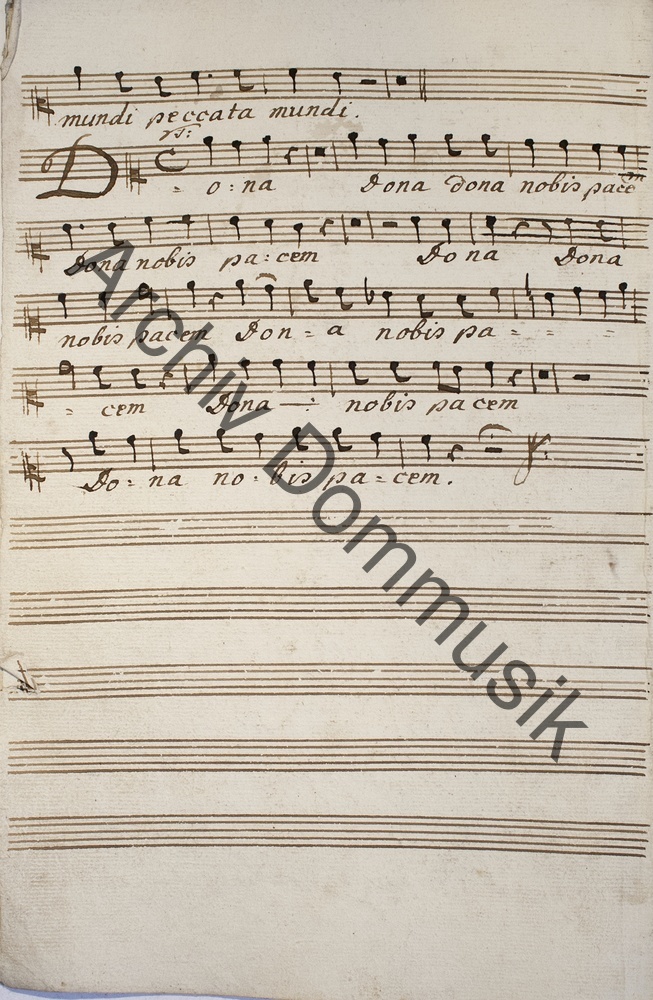 mundi peccata mundi.
D - o:na Dona dona nobis pacem
Dona nobis pa:cem Dona Dona
nobis pacem Don=a nobis pa=
= cem Dona —:— nobis pacem
Do:na no:bis pa=cem.
Archiv Dommusik